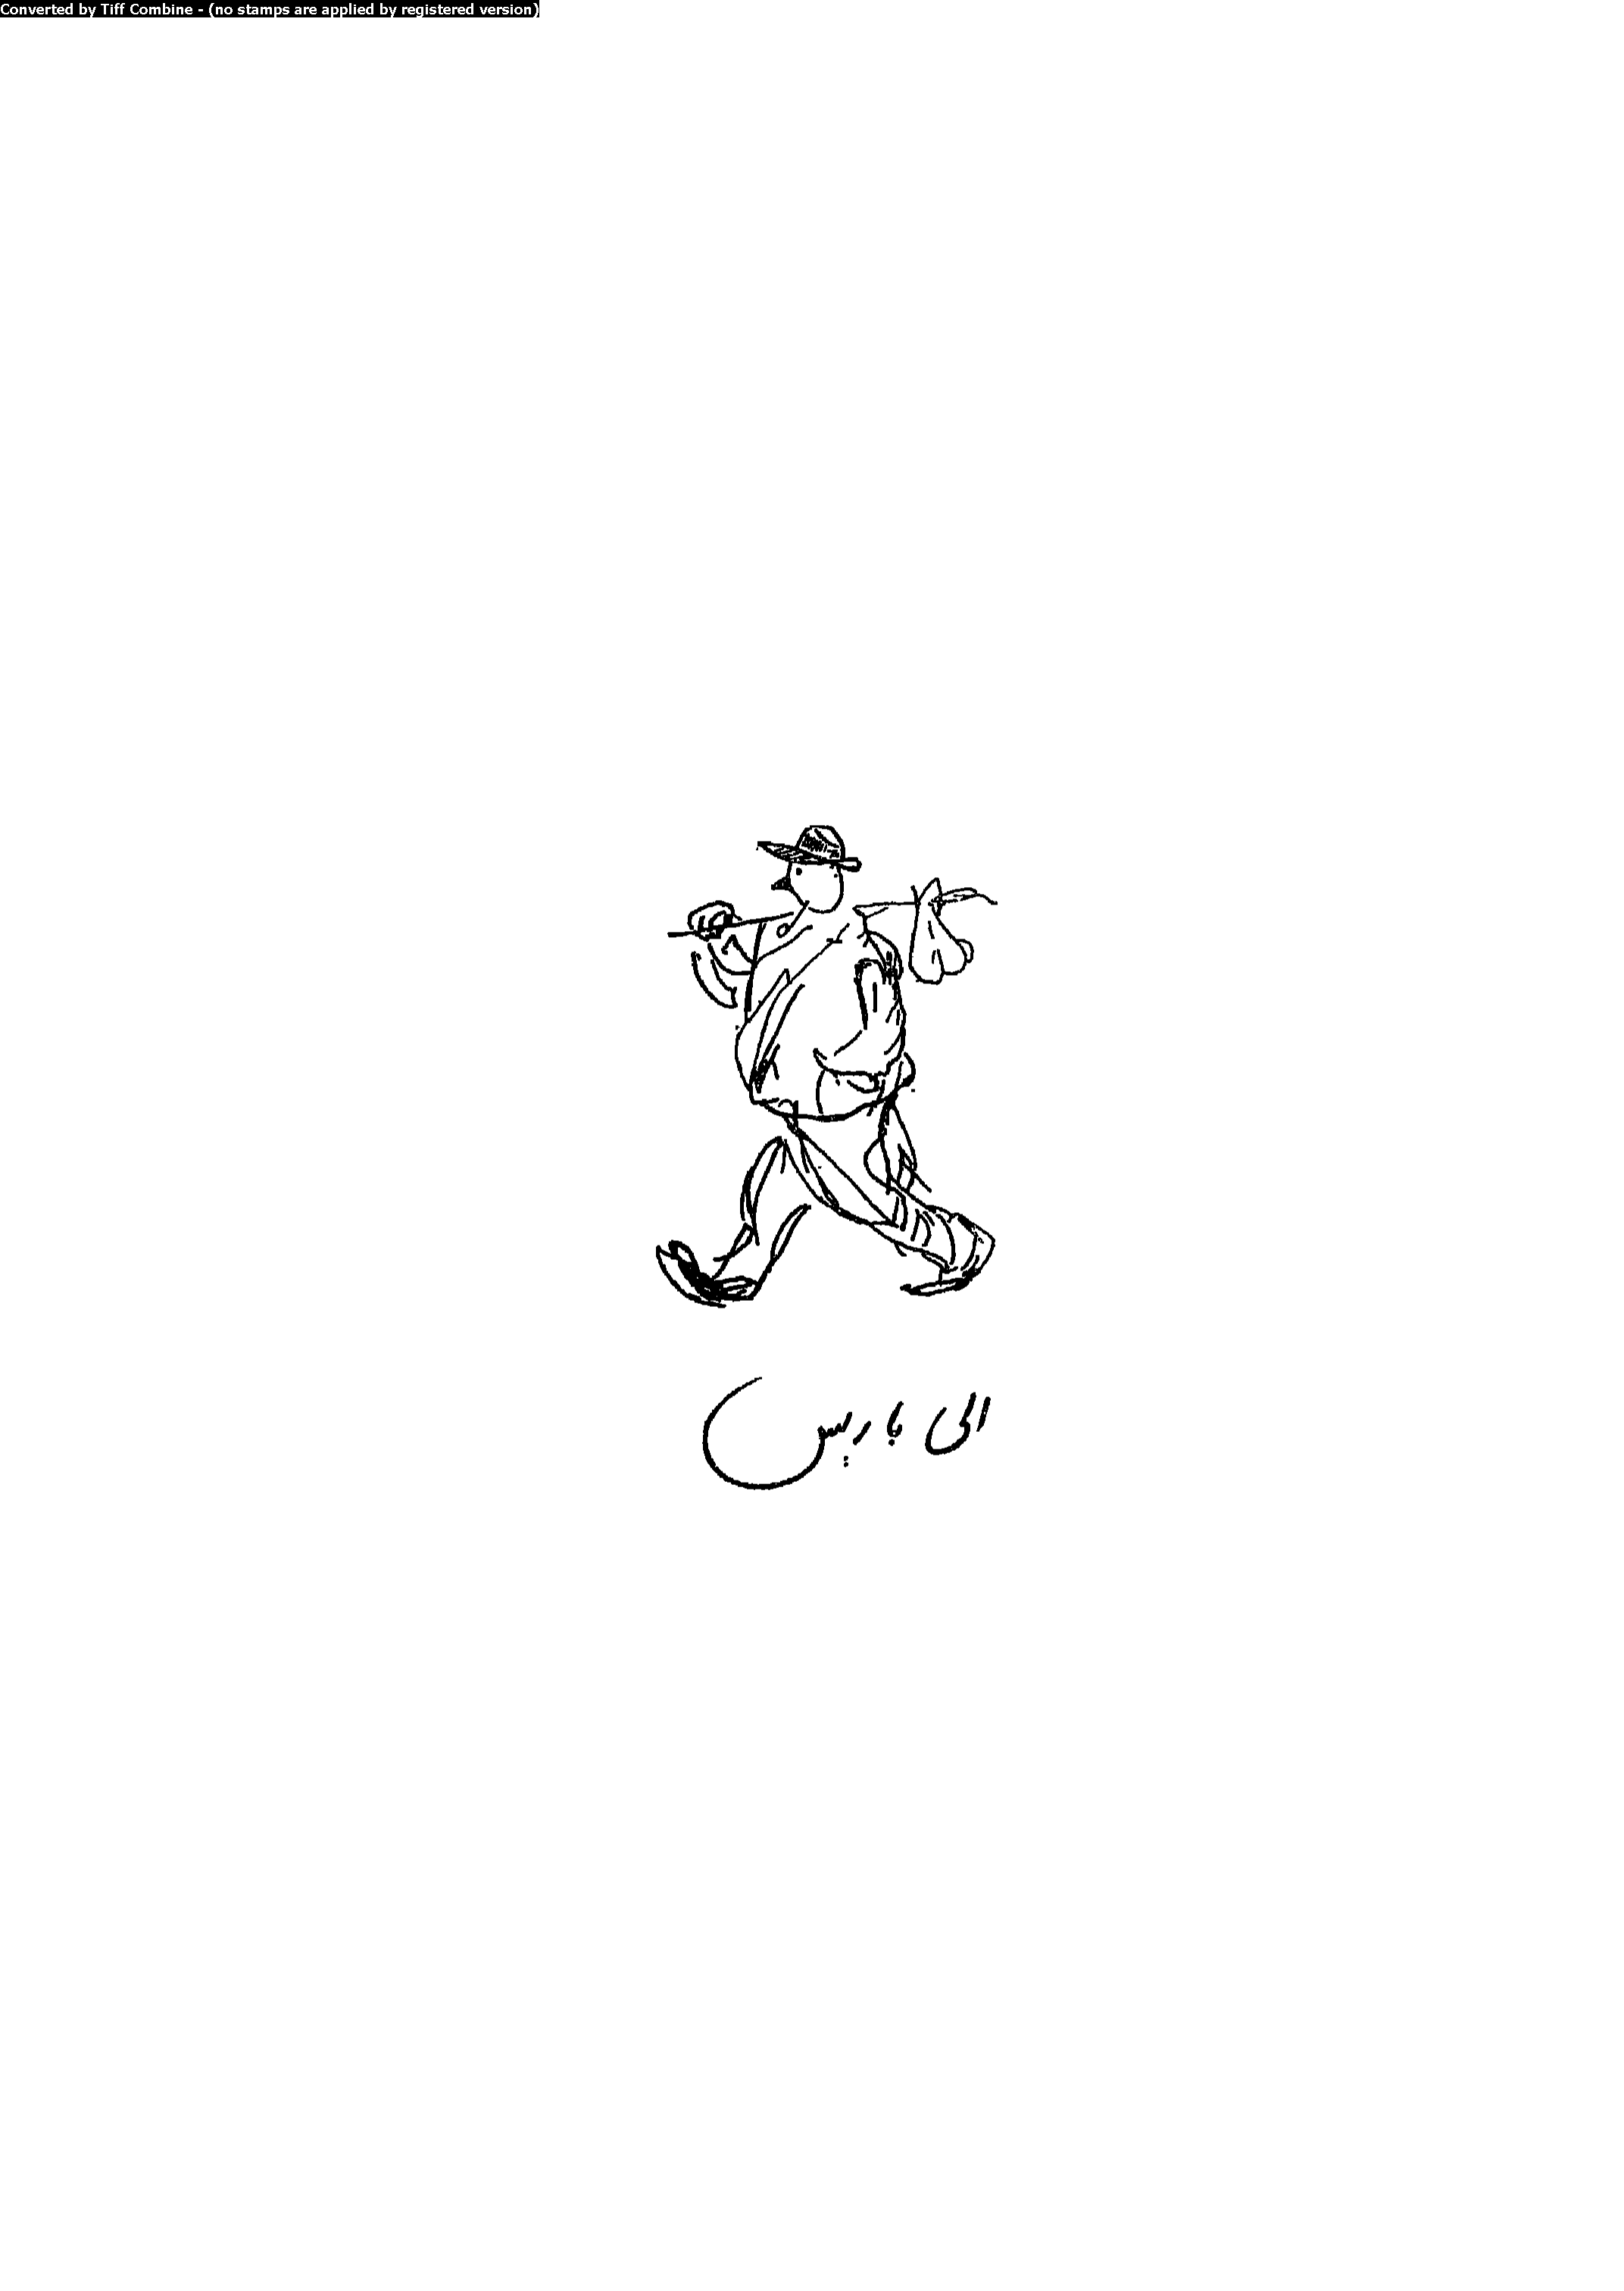 Converted by Tiff Combine - (no stamps are applied by registered version)
الى باريس